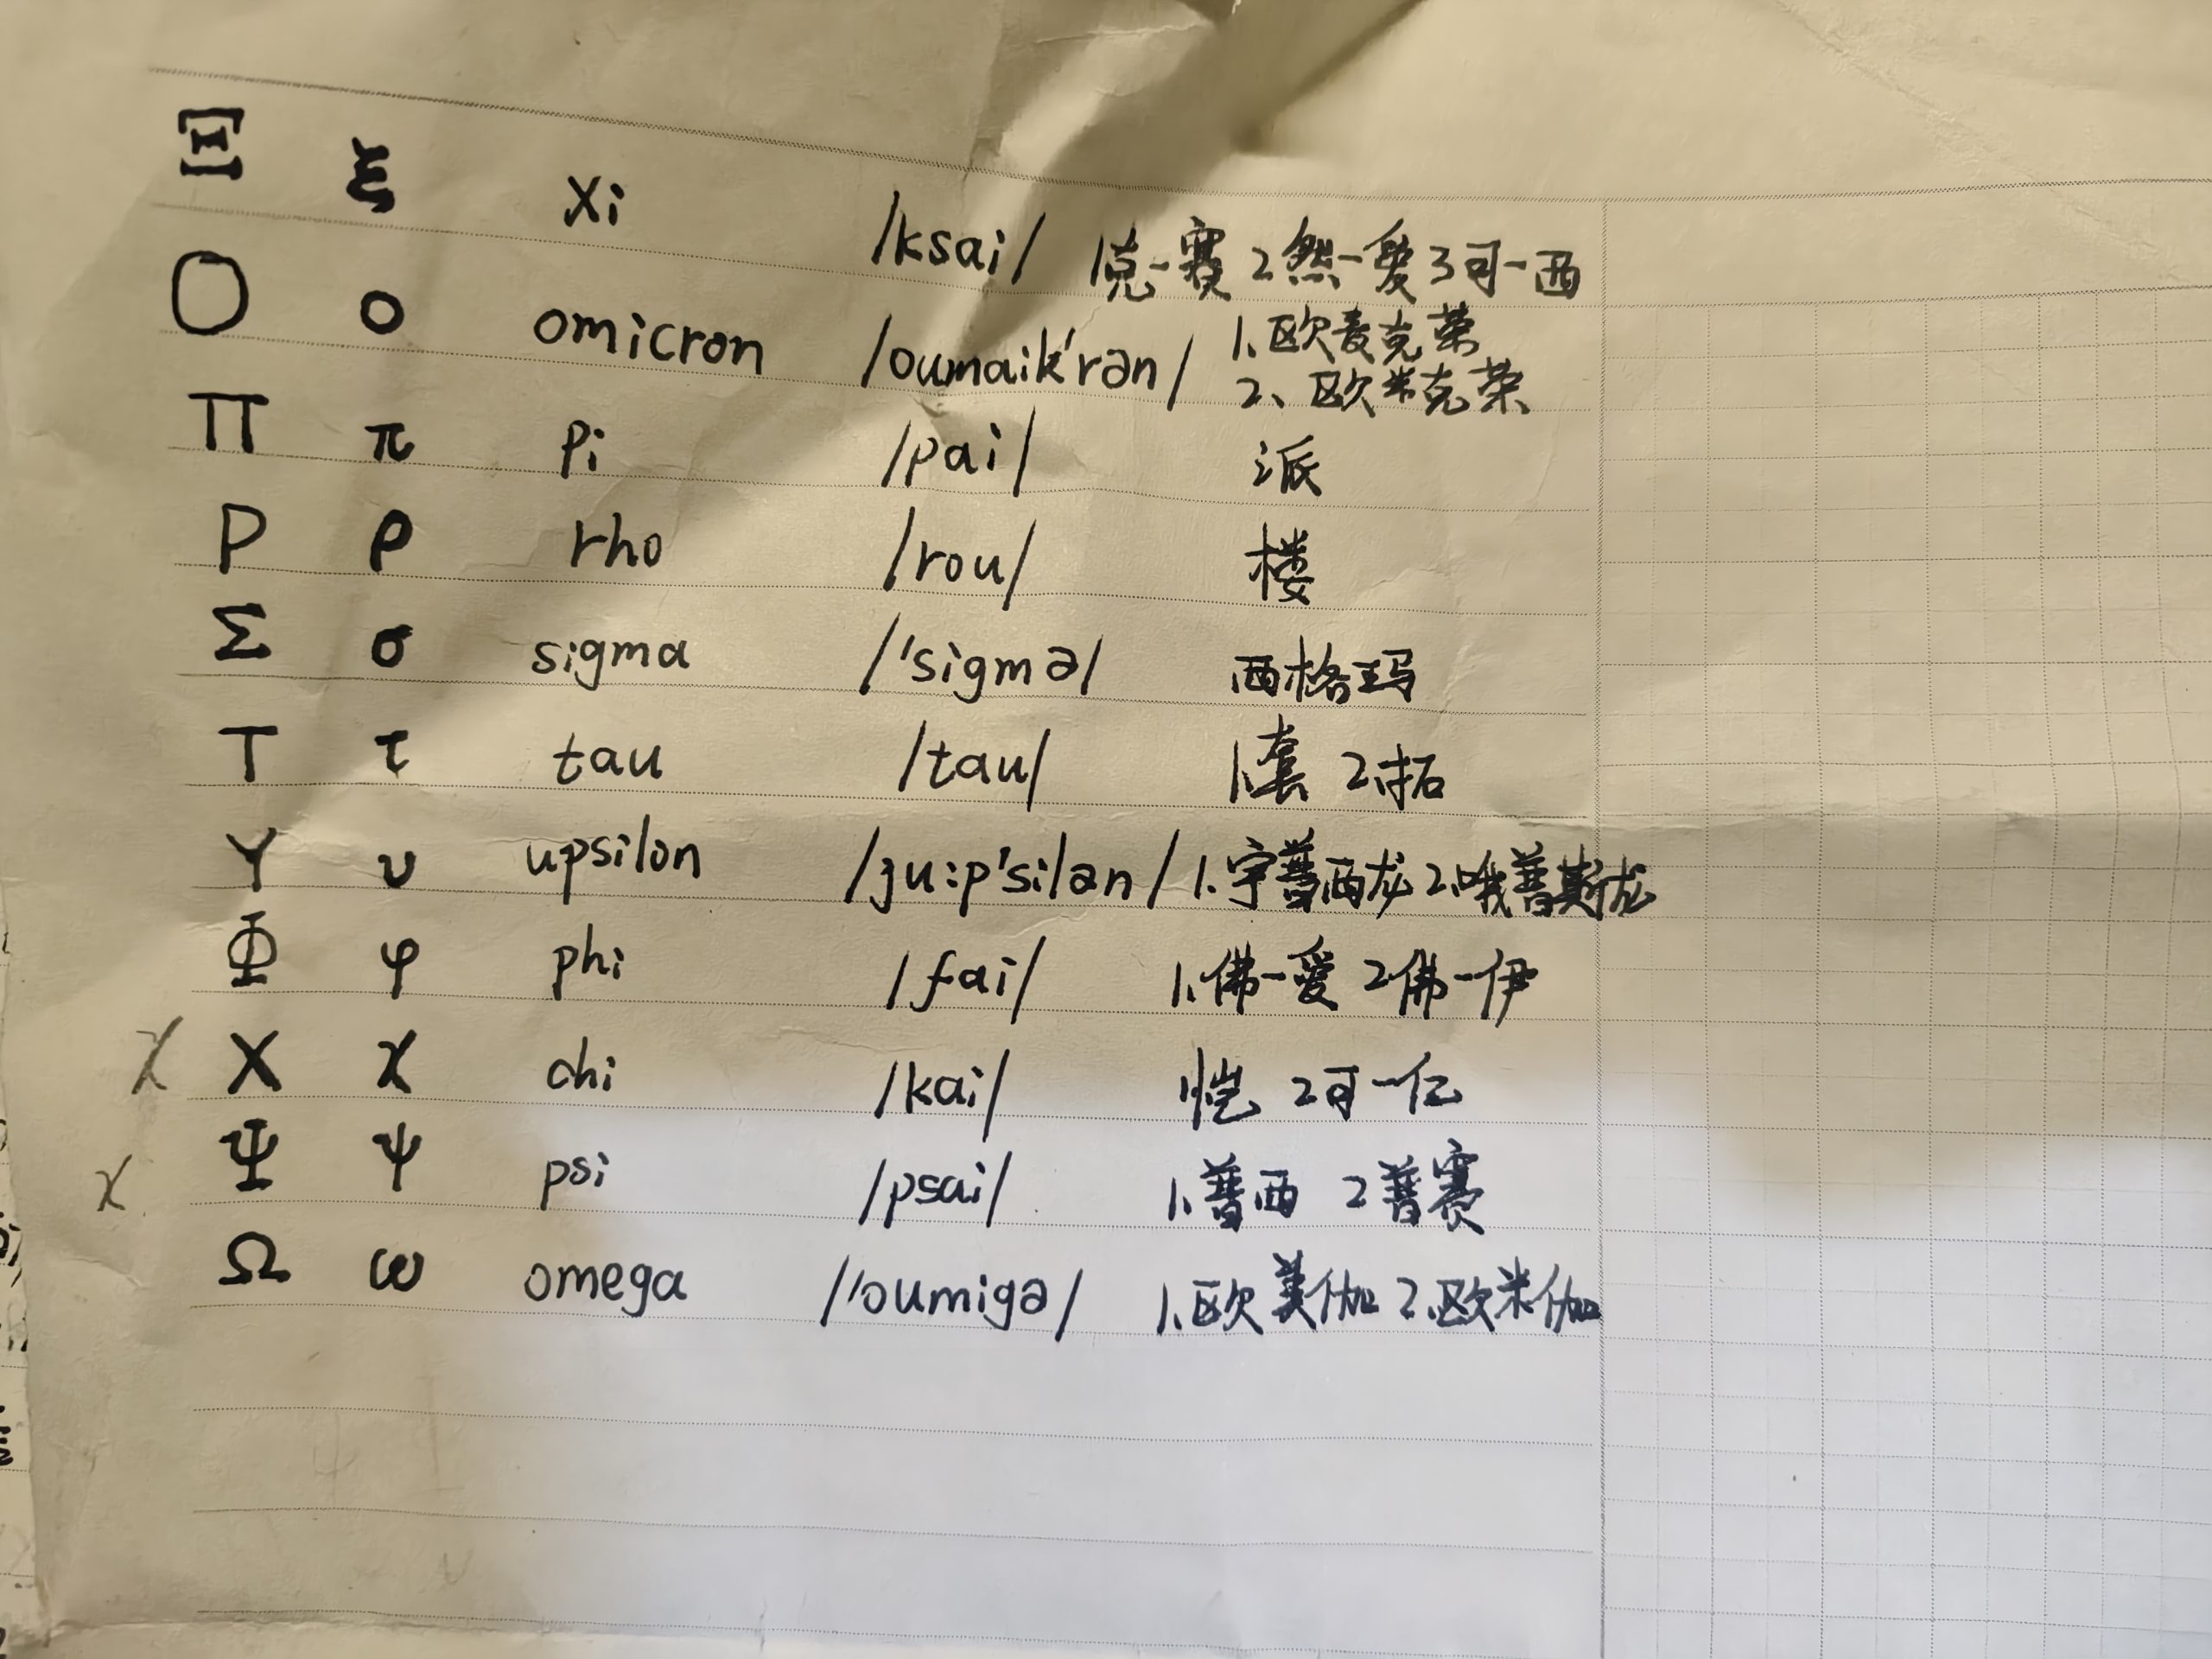 Ξ ξ xi /ksai/ 1克-赛 2然-爱 3可-西
Ο ο omicron /oumaik'rən/ 1.欧麦克荣
2、欧米克荣
Π π pi /pai/ 派
Ρ ρ rho /rou/ 楼
Σ σ sigma /'sigmə/ 西格玛
Τ τ tau /tau/ 1.套 2.拓
Υ υ upsilon /ju:p'silən/ 1.宇普西龙 2.哦普斯龙
Φ φ phi /fai/ 1.佛-爱 2佛-伊
χ Χ χ chi /kai/ 1恺 2可-亿
χ Ψ ψ psi /psai/ 1.普西 2普赛
Ω ω omega /'oumigə/ 1.欧美伽 2.欧米伽